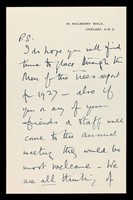 18, MULBERRY WALK,
CHELSEA, S.W.3.
P.S.
I do hope you will find
time to glance through the
Men of the Trees report
for 1927 — also if
you or any of your
friends & staff will
come to the annual
meeting they would be
most welcome — We
are all thinking of